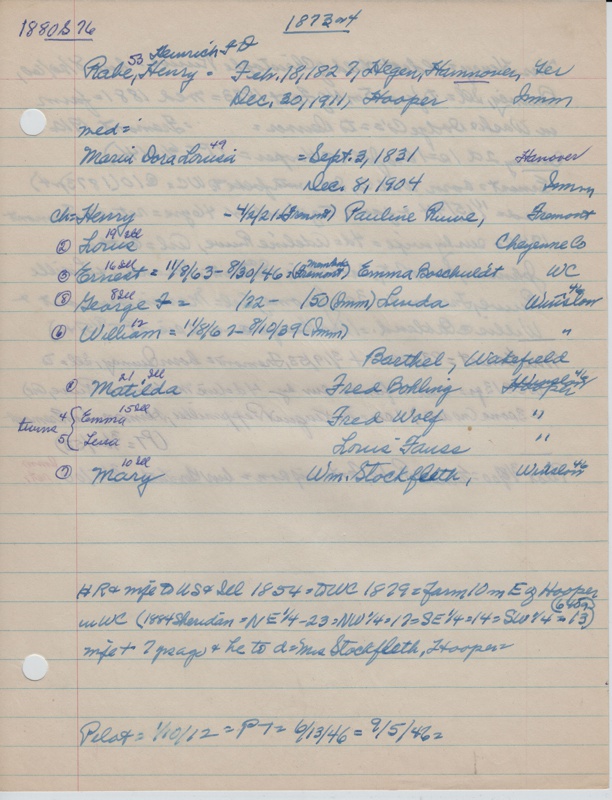 1880S 76 1873 or 4
53 Heinrich F D
Rabe, Henry = Feb. 18, 1827, Hagen, Hannover, Ger
Dec. 20, 1911, Hooper Imm
med =
49
Maria Dora Louisa = Sept. 3, 1831 Hanover
Dec. 8, 1904 Imm
ch = Henry - 4/2/21 (Fremont) Pauline Fremont
19 Ill
② Louis Cheyenne Co
16 Ill
③ Ernest = 11/8/63 - 8/30/46 = (Fremont) Emma Boschuldt WC
8 Ill 46
⑧ George F = /22 - /50 (Imm) Linda Winslow
12
⑥ William = 11/8/67 - 8/10/39 (Imm) "
Barthel, Wakefield
21 Ill 46
① Matilda Fred Bohling Hooper
15 Ill
twins 4 Emma Fred Wolf "
5 Lena Louis Fauss "
10 Ill 46
⑦ Mary Wm. Stockfleth, Winslow
H R & wife to US & Ill 1854 = to WC 1879 = farm 10 m E of Hooper
(640a)
in WC (1884 Sheridan = NE 1/4 - 23 = NW 1/4 = 17 = SE 1/4 = 14 = SW 1/4 = 13)
wife + 7 yrs ago & he to d = Mrs Stockfleth, Hooper =
Pilot = 1/10/12 = P T = 6/13/46 = 9/5/46 =